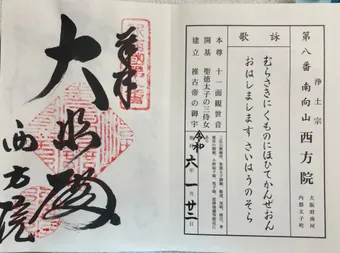 浄土宗
第八番 南向山 西方院
大阪府南河
内郡太子町
詠歌
むらさきにくものにほひてかんぜおん
おはしましますさいはうのそら
本尊 十一面観世音
開基 聖徳太子の三侍女
建立 推古帝の御宇
令和六年一月廿二日
奉拝
大悲殿
西方院